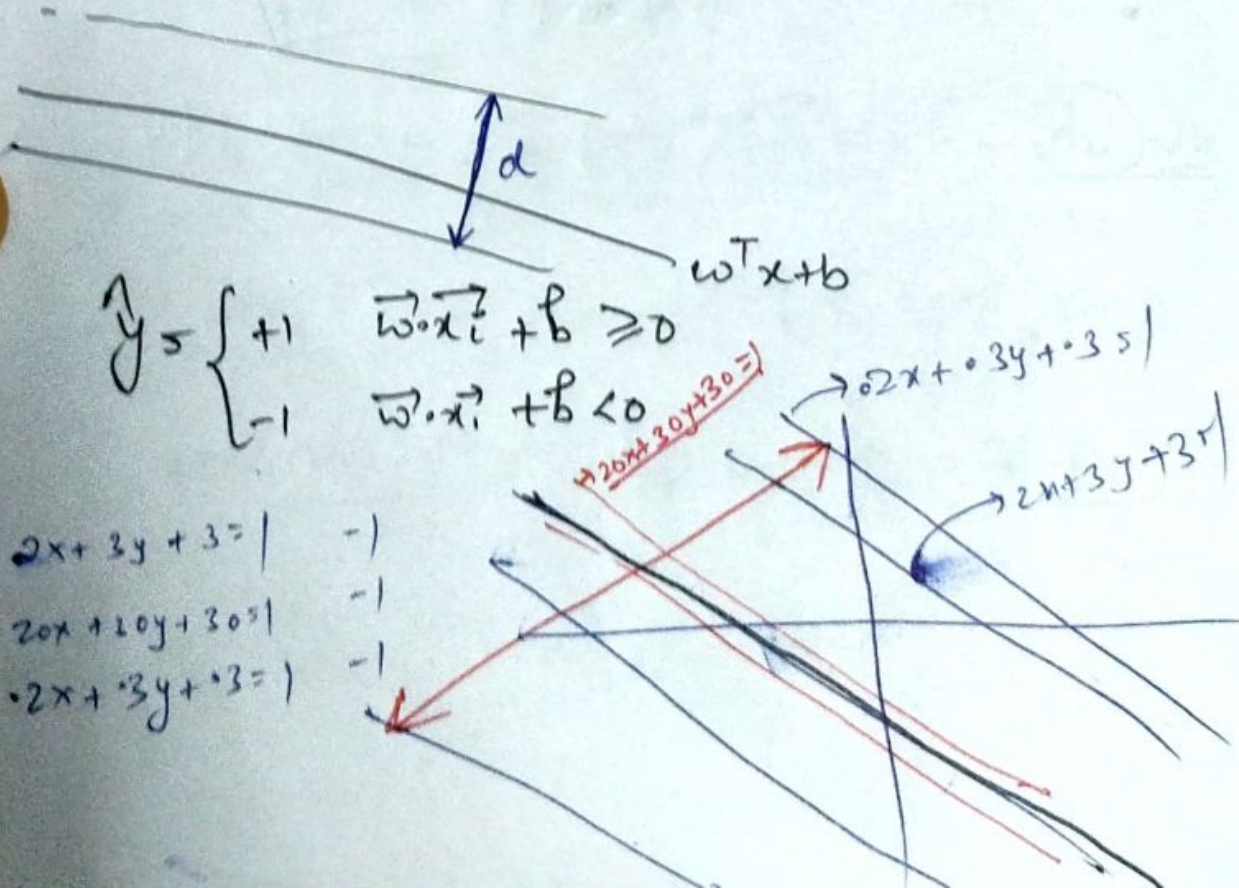 d
w^T x+b
ŷ = { +1 w⃗·x⃗i + b ≥0
-1 w⃗·x⃗i + b <0
→20x+30y+30=1
→ .2x + .3y + .3 = 1
→ 2x+3y+3=1
2x + 3y + 3 = 1 -1
20x + 30y + 30=1 -1
.2x + .3y + .3 = 1 -1